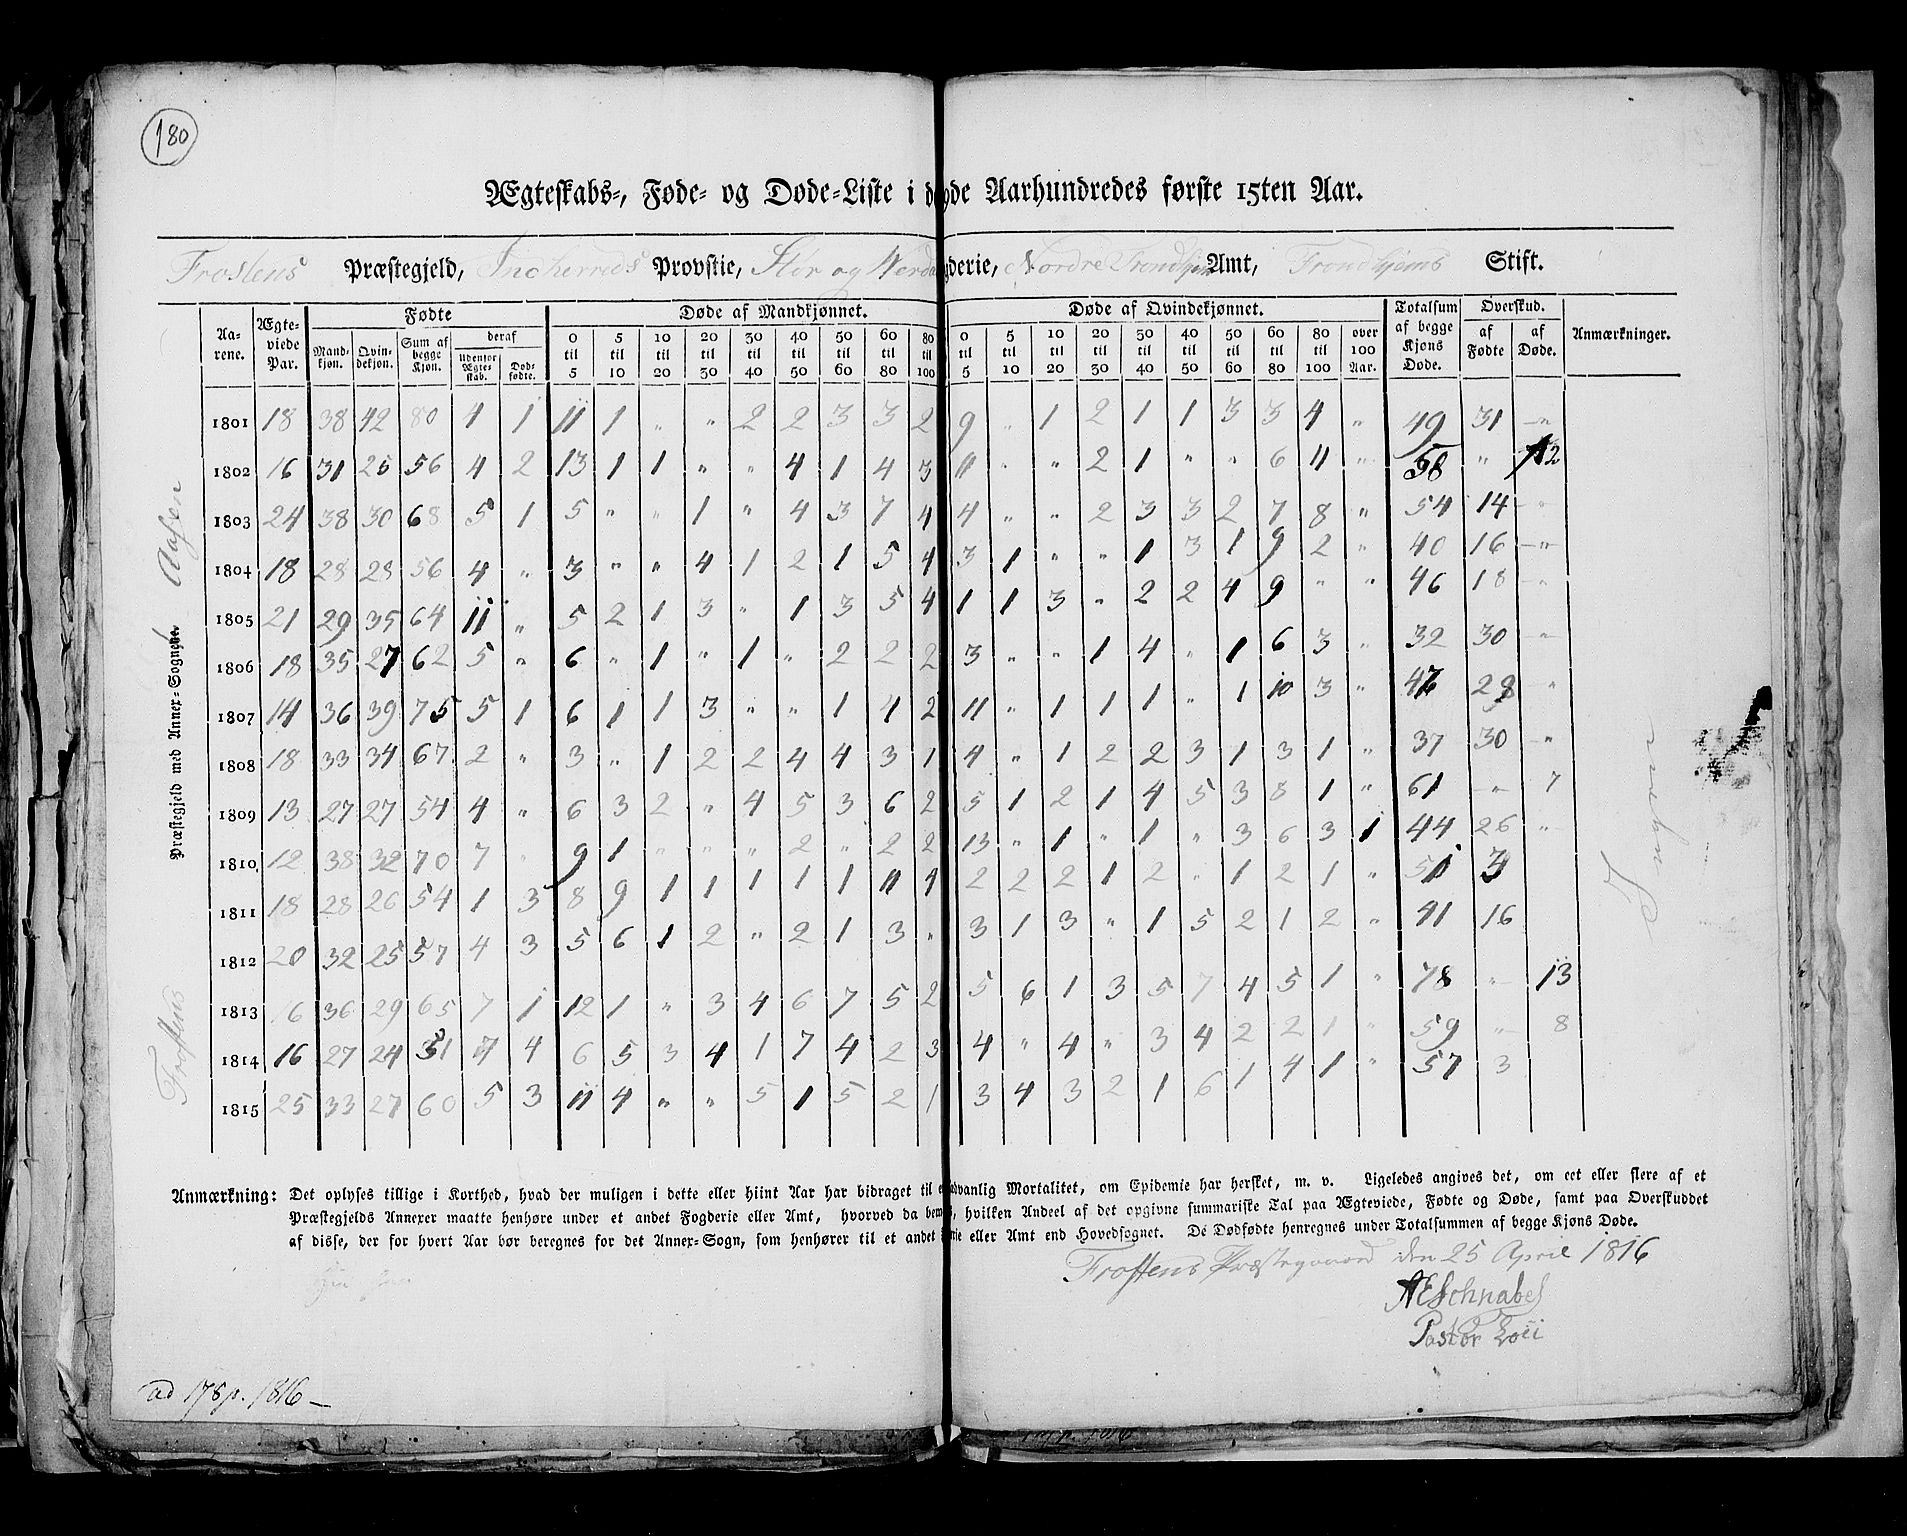 180
Ægteskabs-, Føde- og Døde-Liste i d de Aarhundredes første 15ten Aar.
Frostens Præstegjeld, Inderreds Provstie, Stør og Werda gderie, Nordre Trondhjems Amt, Trondhjems Stift.
Aa-rene. Ægte-viede Par. Fødte Døde af Mandkjønnet. Døde af Qvindekjønnet. Totalsum af begge Kjøns Døde. Overskud. Anmærkninger.
Mand-kjøn. Qvin-dekjøn. Sum af begge Kjøn. deraf Udenfor Ægte-skab. Død-fødte. 0 til 5 5 til 10 10 til 20 20 til 30 30 til 40 40 til 50 50 til 60 60 til 80 80 til 100 0 til 5 5 til 10 10 til 20 20 til 30 30 til 40 40 til 50 50 til 60 60 til 80 80 til 100 over 100 Aar. af Fødte af Døde.
Præstegjeld med Annex-Sognene.
Frostens
Aasen
1801 18 38 42 80 4 1 11 1 " " 2 2 3 3 2 9 " 1 2 1 1 3 3 4 " 49 31 "
1802 16 31 25 56 4 2 13 1 1 " " 4 1 4 3 11 " " 2 1 " " 6 4 " 58 " 2
1803 24 38 30 68 5 1 5 " " 1 " 4 3 7 4 4 " " 2 3 3 2 7 8 " 54 14 "
1804 18 28 28 56 4 " 3 " " 4 1 2 1 5 4 3 1 " " 1 3 1 9 2 " 40 16 "
1805 21 29 35 64 11 " 5 2 1 3 " 1 3 5 4 1 1 3 " 2 2 4 9 " " 46 18 "
1806 18 35 27 62 5 " 6 " 1 " 1 " 2 2 2 3 " " 1 4 " 1 6 3 " 32 30 "
1807 14 36 39 75 5 1 6 1 1 3 " " 1 4 2 11 " 1 1 1 " 1 10 3 " 47 28 "
1808 18 33 34 67 2 " 3 " 1 2 2 4 4 3 1 4 " 1 2 2 3 1 3 1 " 37 30 "
1809 13 27 27 54 4 " 6 3 2 " 4 5 3 6 2 5 1 2 1 4 5 3 8 1 " 61 " 7
1810 12 38 32 70 7 " 9 1 " " " 2 " 2 2 13 " 1 " 1 " 3 6 3 1 44 26 "
1811 18 28 26 54 1 3 8 9 1 1 1 1 1 11 4 2 2 2 1 2 " 1 2 1 " 51 3
1812 20 32 25 57 4 3 5 6 1 2 " 2 1 3 " 3 1 3 " 1 5 2 1 2 " 41 16
1813 16 36 29 65 7 1 12 1 " 3 4 6 7 5 2 5 6 1 3 5 7 4 5 1 " 78 " 13
1814 16 27 24 51 7 4 6 5 3 4 1 7 4 2 3 4 " 4 " 3 4 2 2 1 " 59 " 8
1815 25 33 27 60 5 3 11 4 " " 5 1 5 2 1 3 4 3 2 1 6 1 4 1 " 57 3
Anmærkning: Det oplyses tillige i Korthed, hvad der muligen i dette eller hiint Aar har bidraget til e advanlig Mortalitet, om Epidemie har hersket, m. v. Ligeledes angives det, om eet eller flere af et
Præstegjelds Annexer maatte henhøre under et andet Fogderie eller Amt, hvorved da bem s, hvilken Andeel af det opgivne summariske Tal paa Ægteviede, Fødte og Døde, samt paa Overskuddet
af disse, der for hvert Aar bør beregnes for det Annex-Sogn, som henhører til et andet rie eller Amt end Hovedsognet. De Dødfødte henregnes under Totalsummen af begge Kjøns Døde.
Frostens Præstegaard den 25 April 1816
AESchnabel
Pastor Loci
ad 178 p. 1816